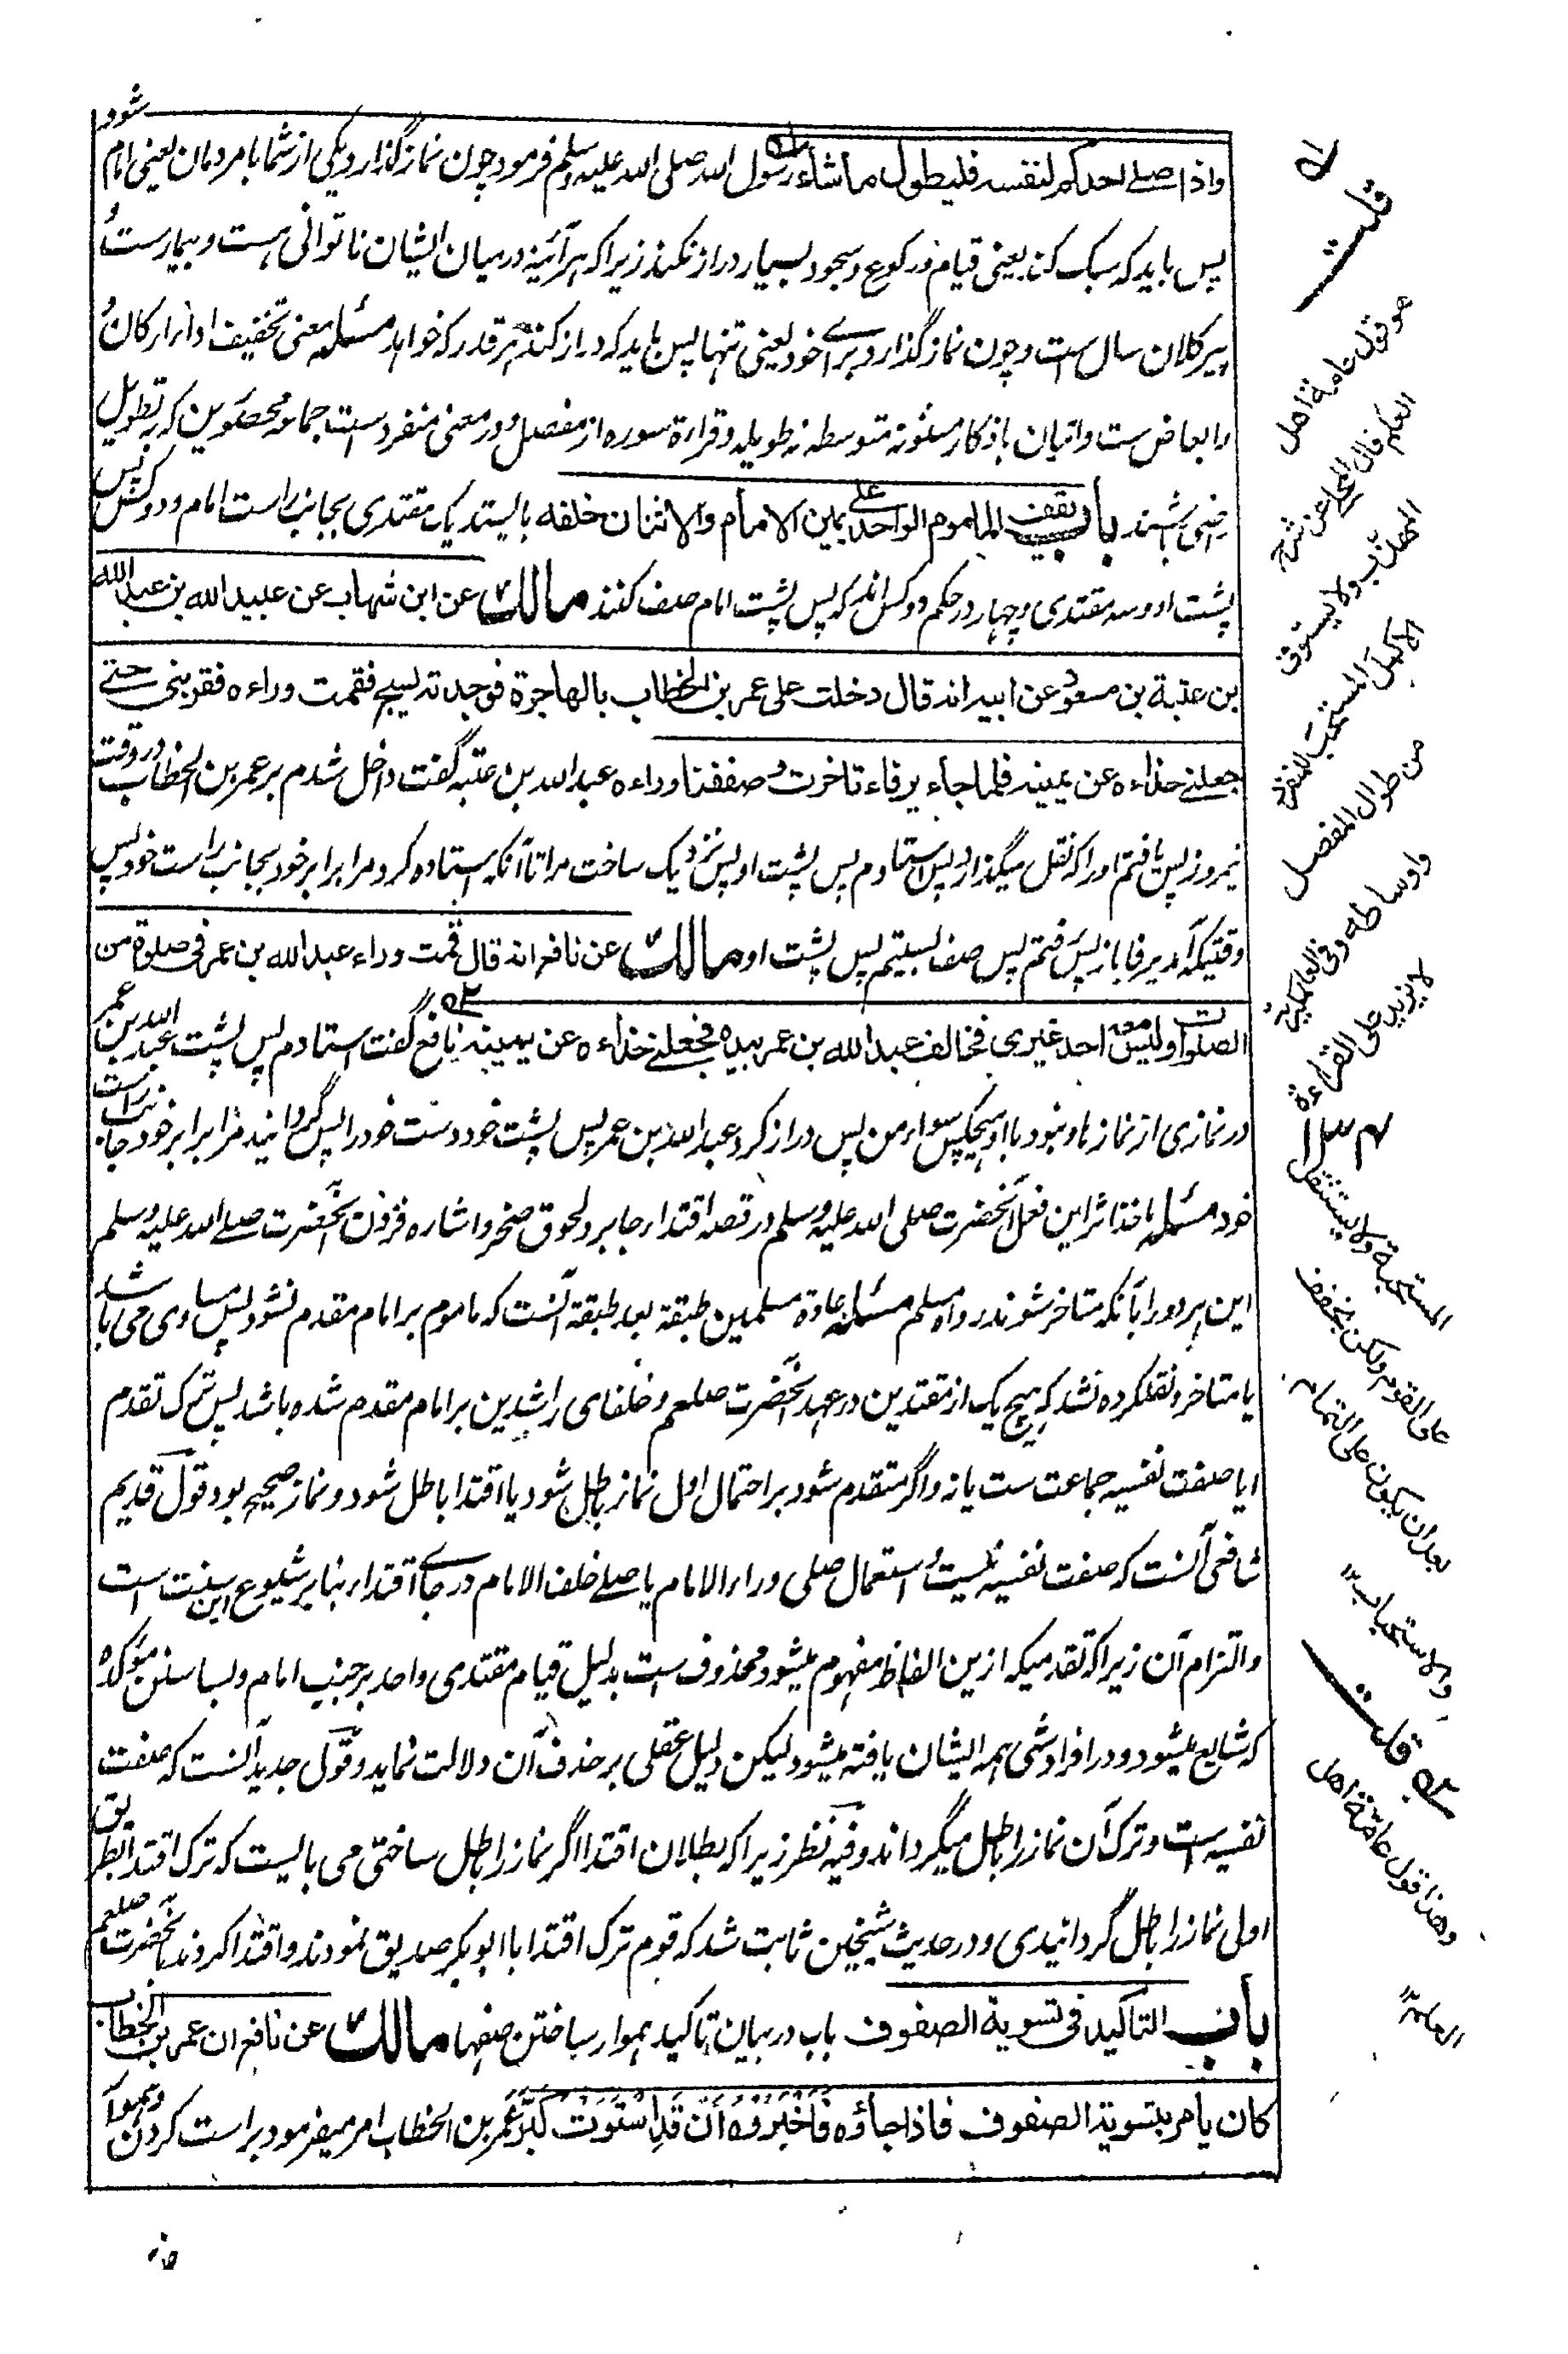 واذا صلے احدکم لنفسہ فلیطول ما شاء رسول اللہ صلی اللہ علیہ وسلم فرمود چون نماز گذارد یکی از شما با مردمان یعنی امام شود
پس باید کہ سبک کند یعنی قیام و رکوع و سجود بسیار دراز نکند زیرا کہ ہر آئینہ درمیان ایشان ناتوانی ہست و بیمارست و
پیر کلان سال ست و چون نماز گذارد برای خود یعنی تنہا پس باید کہ دراز کند ہر قدر کہ خواہد مسئلہ معنی تخفیف ادا ارکان و
و اتیان باذکار مسنونہ متوسطہ نہ طویلہ و قراءۃ سورہ از مفصل و در معنی منفردست جماعہ محصورین کہ بہ تطویل
راضی باشند باب یقف الماموم الواحد علی یمین الامام والاثنان خلفہ بایستد یک مقتدی بجانب راست امام و دو کس پس
پشت او و سہ مقتدی و چہار در حکم دو کس اند کہ پس پشت امام صف کنند مالک عن ابن شہاب عن عبید اللہ بن عبد اللہ
بن عتبة بن مسعود عن ابیہ انہ قال دخلت علی عمر بن الخطاب بالہاجرة فوجدتہ یسبح فقمت وراءہ فقربنی حتے
جعلنے حذاءہ عن یمینہ فلما جاء یرفاء تاخرت فصففنا وراءہ عبد اللہ بن عتبہ گفت داخل شدم بر عمر بن الخطاب در وقت
نیمروز پس یافتم او را کہ نفل میگذارد پس استادم پس پشت او پس نزدیک ساخت مرا تا آنکہ استادہ کرد مرا برابر خود بجانب راست خود پس
وقتیکہ آمد یرفا باز پس رفتم پس صف بستیم پس پشت او مالک عن نافع انہ قال قمت وراء عبد اللہ بن عمر فی صلوة من
الصلوات ولیس معہ احد غیری فخالف عبد اللہ بن عمر بیدہ فجعلنے حذاءہ عن یمینہ نافع گفت استادم پس پشت عبد اللہ بن عمر
در نمازی از نمازہا و نبود با او ہیچکس سواء من پس دراز کرد عبد اللہ بن عمر پس پشت خود دست خود را پس گردانید مرا برابر خود جانب راست
خود مسئلہ ماخذ اثر این فعل آنحضرت صلی اللہ علیہ وسلم در قصہ اقتداء جابر و لحوق صخر و اشارہ فرمودن آنحضرت صلے اللہ علیہ وسلم
این ہر دو را بآنکہ متاخر شوند رواہ مسلم مسئلہ عادة مسلمین طبقة بعد طبقة آنست کہ ماموم بر امام مقدم نشود پس مساوی می باشد
یا متاخر و نقل کردہ نشد کہ ہیچ یک از مقتدین در عہد آنحضرت صلعم و خلفای راشدین بر امام مقدم شدہ باشد پس ترک تقدم
ایا صفت نفسیہ جماعت ست یا نہ و اگر متقدم شود بر احتمال اول نماز باطل شود یا اقتدا باطل شود و نماز صحیح بود قول قدیم
شافعی آنست کہ صفت نفسیہ نیست و استعمال صلی وراء الامام یا صلے خلف الامام در جای اقتداء بنا بر شیوع این سنت است
والتزام آن زیرا کہ تقدمیکہ ازین الفاظ مفہوم میشود محذوف ست بدلیل قیام مقتدی واحد بر جنب امام و بسا سنن مؤکدہ
کہ شایع میشود و در افراد شی ہمہ ایشان یافتہ میشود لیکن دلیل عقلی بر حذف آن دلالت نماید و قول جدید آنست کہ صفت
نفسیہ ست و ترک آن نماز را باطل میگرداند و فیہ نظر زیرا کہ بطلان اقتدا اگر نماز را باطل ساختی می بایست کہ ترک اقتدا بطریق
اولی نماز را باطل گردانیدی و در حدیث شیخین ثابت شد کہ قوم ترک اقتدا با ابو بکر صدیق نمودند و اقتدا کردند بآنحضرت صلعم
باب التاکید فی تسویة الصفوف باب در بیان تاکید ہموار ساختن صفہا مالک عن نافع ان عمر بن الخطاب
کان یامر بتسویة الصفوف فاذا جاؤہ فَاَخْبَرُوْہ اَنْ قَدِ اسْتَوَتْ کَبَّرَ عمر بن الخطاب امر میفرمود براست کردن
قلت
ہو قول عامة اہل
العلم قال المحلی عن شرح
المہذب ولا یستوفی
الاکمل المستحب للمنفرد
من طوال المفصل
واوساطہ وفی العالمگیریہ
لا یزید علی القراءة
المستحبة ولا یستثقل
علی القوم ولکن یخفف
بعد ان یکون علی التمام
والاستحباب
قلت
وھذا قول عامة اہل
العلم